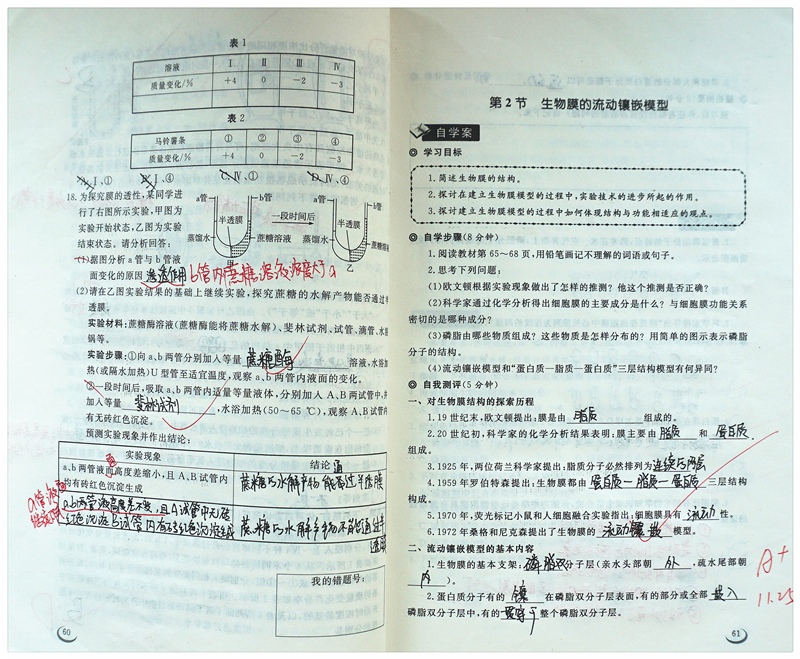 表1
溶液 Ⅰ Ⅱ Ⅲ Ⅳ
质量变化/% +4 0 −2 −3
表2
马铃薯条 ① ② ③ ④
质量变化/% +4 0 −2 −3
A.Ⅰ、① B.Ⅰ、④ C.Ⅳ、① D.Ⅳ、④
18.为探究膜的透性,某同学进
行了右图所示实验,甲图为
实验开始状态,乙图为实验
结束状态。请分析回答:
a管 b管 a管 b管
半透膜 一段时间后 半透膜
蒸馏水 蔗糖溶液 蒸馏水 蔗糖溶液
甲 乙
(1)据图分析a管与b管液
面变化的原因 渗透作用 b管内蔗糖溶液浓度大于a
(2)请在乙图实验结果的基础上继续实验,探究蔗糖的水解产物能否通过半
透膜。
实验材料:蔗糖酶溶液(蔗糖酶能将蔗糖水解)、斐林试剂、试管、滴管、水浴
锅等。
实验步骤:①向a、b两管分别加入等量 蔗糖酶 溶液,水浴加
热(或隔水加热)U型管至适宜温度,观察a、b两管内液面的变化。
②一段时间后,吸取a、b两管内适量等量液体,分别加入A、B两试管中,并
加入等量 斐林试剂 ,水浴加热(50~65 ℃),观察A、B试管内
有无砖红色沉淀。
预测实验现象并作出结论:
实验现象 结论
a、b两管液面高度差缩小,且A、B试管内
均有砖红色沉淀生成
蔗糖的水解产物能通过半透膜
a、b两管液面高度差不变,且A试管中无砖
红色沉淀B试管内有砖红色沉淀生成
蔗糖的水解产物不能通过半
透膜
我的错题号:
60
第2节 生物膜的流动镶嵌模型
自学案
◎ 学习目标
1.简述生物膜的结构。
2.探讨在建立生物膜模型的过程中,实验技术的进步所起的作用。
3.探讨建立生物膜模型的过程中如何体现结构与功能相适应的观点。
◎ 自学步骤(8分钟)
1.阅读教材第65~68页,用铅笔画记不理解的词语或句子。
2.思考下列问题:
(1)欧文顿根据实验现象做出了怎样的推测?他这个推测是否正确?
(2)科学家通过化学分析得出细胞膜的主要成分是什么?与细胞膜功能关系
密切的是哪种成分?
(3)磷脂由哪些物质组成?这些物质是怎样分布的?用简单的图示表示磷脂
分子的结构。
(4)流动镶嵌模型和“蛋白质—脂质—蛋白质”三层结构模型有何异同?
◎ 自我测评(5分钟)
一、对生物膜结构的探索历程
1.19世纪末,欧文顿提出:膜是由 脂质 组成的。
2.20世纪初,科学家的化学分析结果表明:膜主要由 脂质 和 蛋白质
组成。
3.1925年,两位荷兰科学家提出:脂质分子必然排列为 连续的两层
4.1959年罗伯特森提出:生物膜都由 蛋白质—脂质—蛋白质 三层结构
构成。
5.1970年,荧光标记小鼠和人细胞融合实验指出:细胞膜具有 流动 性。
6.1972年桑格和尼克森提出了生物膜的 流动镶嵌 模型。
二、流动镶嵌模型的基本内容
1.生物膜的基本支架:磷脂双分子层(亲水头部朝 外 ,疏水尾部朝
内 )。
2.蛋白质分子有的 镶 在磷脂双分子层表面,有的部分或全部 嵌入
磷脂双分子层中,有的 贯穿于 整个磷脂双分子层。
A+
11.25
61